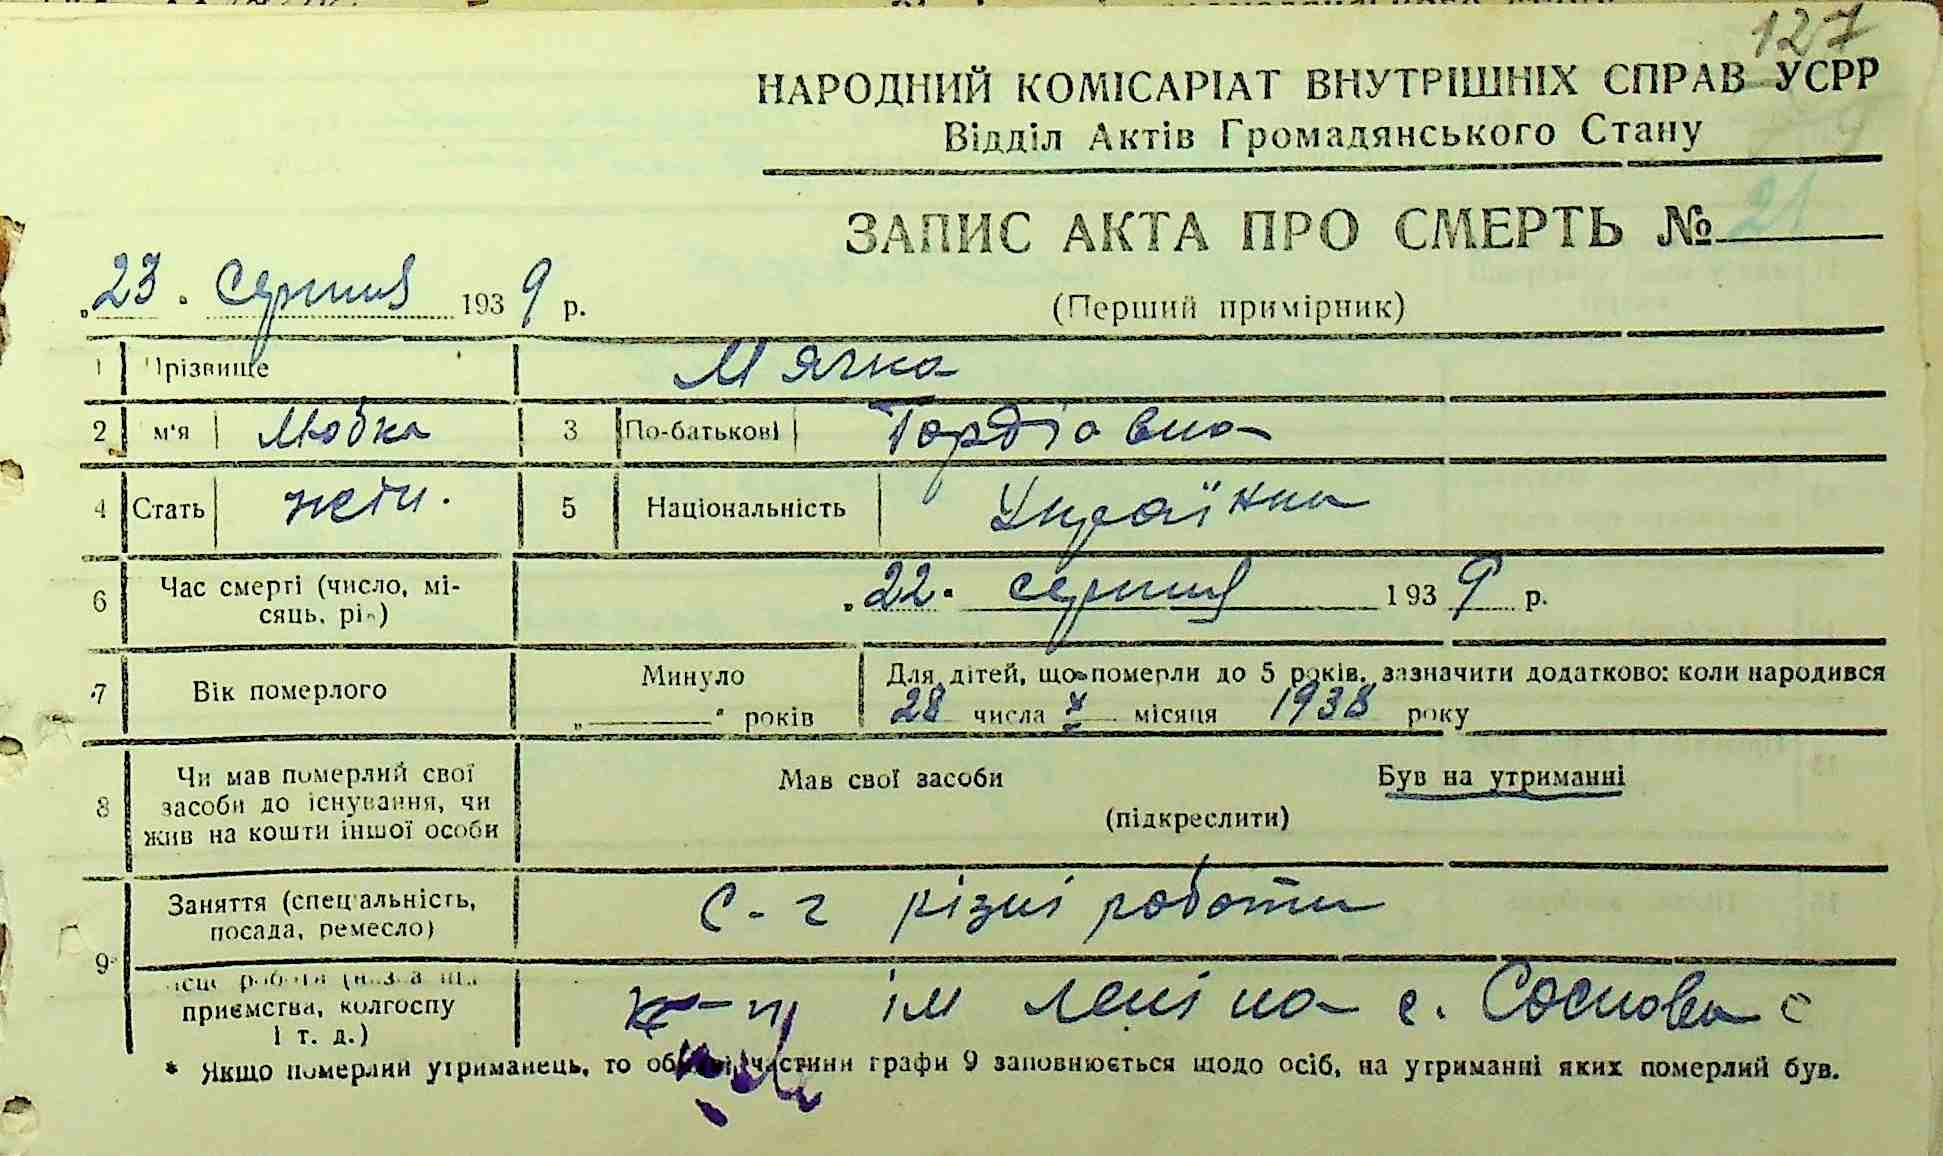 127
НАРОДНИЙ КОМІСАРІАТ ВНУТРІШНІХ СПРАВ УСРР
Відділ Актів Громадянського Стану
ЗАПИС АКТА ПРО СМЕРТЬ № 21
„23. серпня 1939 р.
(Перший примірник)
1 Прізвище М'ячка
2 м'я Любка 3 По-батькові Гордіовна
4 Стать жін. 5 Національність Українка
6 Час смерті (число, мі-
сяць, рік) „22. серпня 1939 р.
7 Вік померлого Минуло „ " років
Для дітей, що померли до 5 років, зазначити додатково: коли народився
28 числа X місяця 1938 року
8 Чи мав померлий свої
засоби до існування, чи
жив на кошти іншої особи
Мав свої засоби Був на утриманні
(підкреслити)
9 Заняття (спеціальність,
посада, ремесло) с-г різні роботи
приємства, колгоспу
і т. д.) к-п ім Леніна с. Соснова
* Якщо померлий утриманець, то обидві частини графи 9 заповнюється щодо осіб, на утриманні яких померлий був.